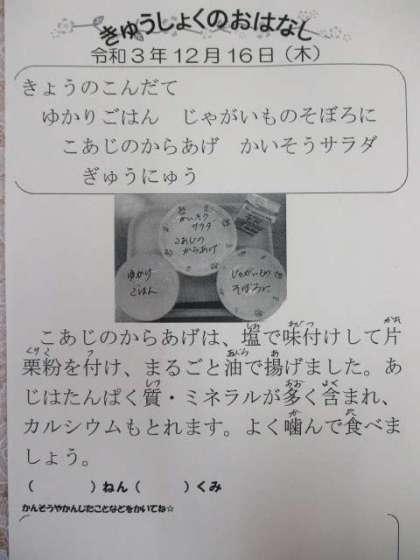 きゅうしょくのおはなし
令和3年12月16日（木）
きょうのこんだて
ゆかりごはん　じゃがいものそぼろに
こあじのからあげ　かいそうサラダ
ぎゅうにゅう
かいそう
サラダ
こあじの
からあげ
ゆかり
ごはん
じゃがいもの
そぼろに
こあじのからあげは、塩で味付けして片
栗粉を付け、まるごと油で揚げました。あ
じはたんぱく質・ミネラルが多く含まれ、
カルシウムもとれます。よく噛んで食べま
しょう。
（　　　　）ねん（　　　　）くみ
かんそうやかんじたことなどをかいてね☆